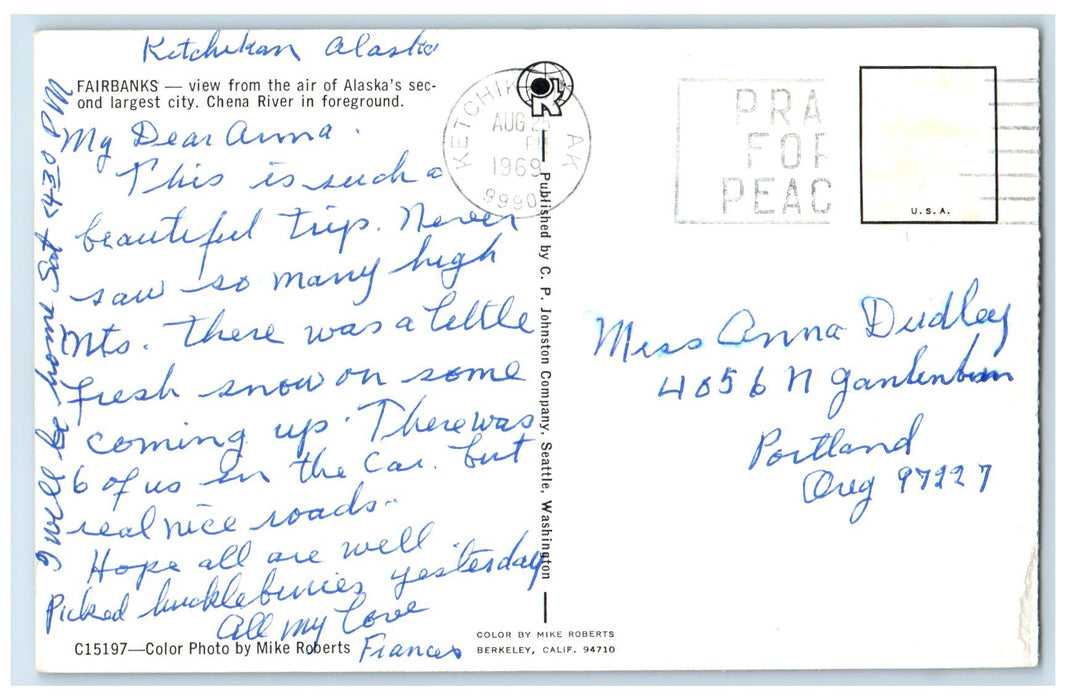 Ketchikan Alaska
FAIRBANKS — view from the air of Alaska's sec-
ond largest city. Chena River in foreground.
My Dear Anna.
This is such a
beautiful trip. Never
saw so many high
Mts. There was a little
fresh snow on some
coming up. There was
6 of us in the car. but
real nice roads-
Hope all are well
Picked huckleburies yesterday
All my Love
Frances
I will be home Sat 430 PM
C15197—Color Photo by Mike Roberts
Published by C. P. Johnston Company, Seattle, Washington
COLOR BY MIKE ROBERTS
BERKELEY, CALIF. 94710
KETCHIK AK
AUG
PM
1969
9990
PRA
FOR
PEAC
U.S.A.
Miss Anna Dudley
4056 N Gantenbein
Portland
Oreg 97227